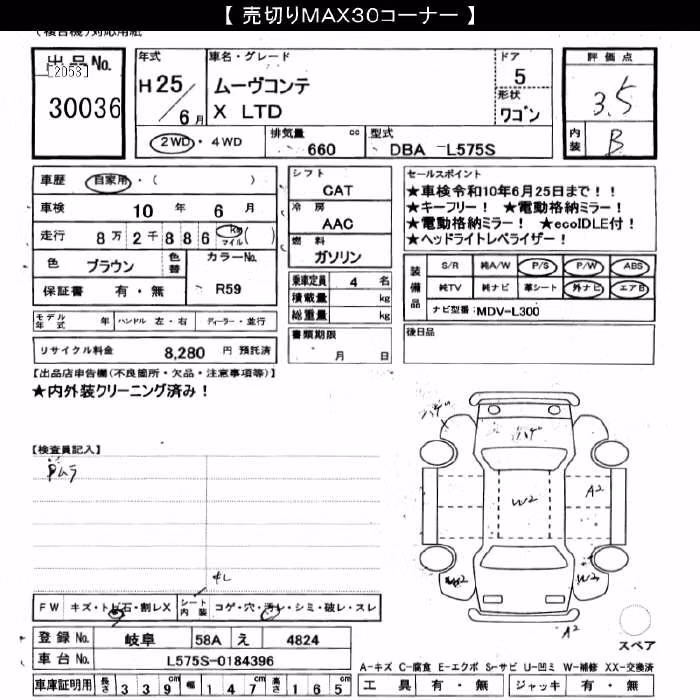 【 売切りMAX30コーナー 】
(複合機)対応用紙
出品No.
[2053]
30036
年式
H 25 / 6 月
車名・グレード
ムーヴコンテ
X LTD
ドア
5
形状
ワゴン
評価点
3.5
内装
B
2WD・4WD
排気量
660 cc
型式
DBA -L575S
車歴 自家用・( )
車検 10 年 6 月
走行 8万2千886 km マイル ( )
色 ブラウン 色替
カラーNo. R59
保証書 有・無
モデル年式 年 ハンドル 左・右 ディーラー・並行
リサイクル料金 8,280 円 預託済
シフト
CAT
冷房
AAC
燃料
ガソリン
乗車定員 4 名
積載量 kg
総重量 kg
書類期限
月 日
セールスポイント
★車検令和10年6月25日まで!!
★キーフリー! ★電動格納ミラー!
★電動格納ミラー! ★ecoIDLE付!
★ヘッドライトレベライザー!
装備品
S/R 純A/W P/S P/W ABS
純TV 純ナビ 革シート 外ナビ エアB
ナビ型番:MDV-L300
後日品
【出品店申告欄(不良箇所・欠品・注意事項等)】
★内外装クリーニング済み!
【検査員記入】
ハゲ
ハゲ
W2
A2
W2
W2
A2
スペア
FW キズ・トビ石・割レX シート内装 コゲ・穴・汚レ・シミ・破レ・スレ
登録No. 岐阜 58A え 4824
車台No. L575S-0184396
車庫証明用 長さ 339cm 幅 147cm 高さ 165cm
A-キズ C-腐食 E-エクボ S-サビ U-凹ミ W-補修 XX-交換済
工具 有・無 ジャッキ 有・無